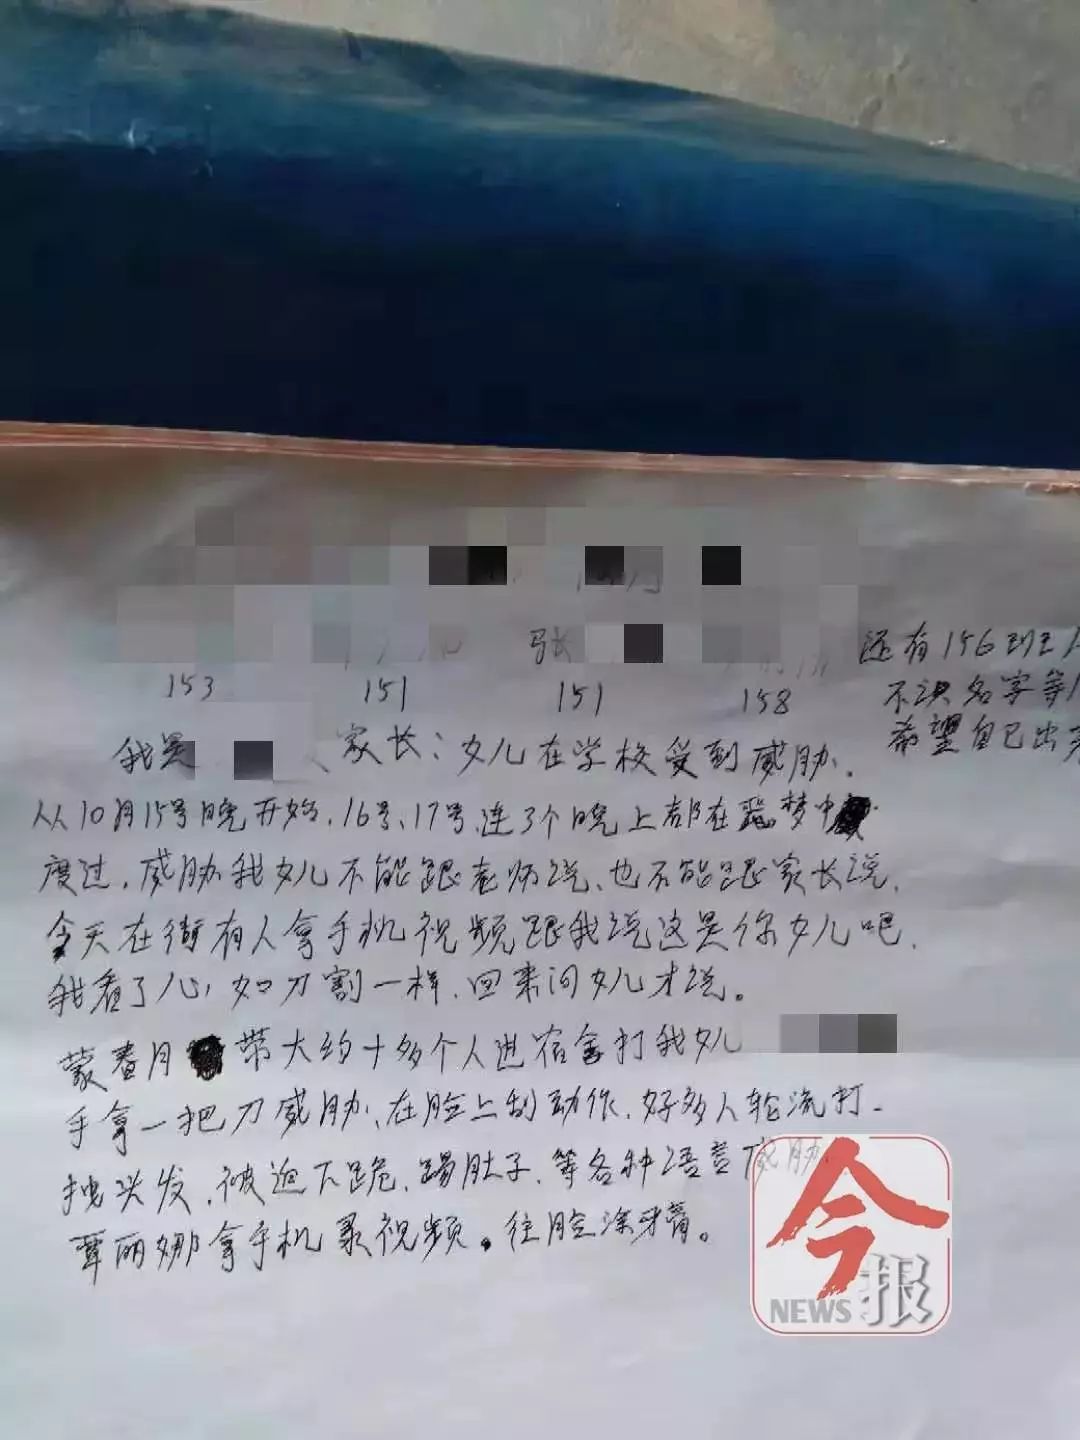 张
还有156班
153 151 151 158 不识名字等
希望自己出
我是 家长：女儿在学校受到威胁.
从10月15号晚开始,16号、17号,连3个晚上都在恶梦中
度过,威胁我女儿不能跟老师说、也不能跟家长说,
今天在街有人拿手机视频跟我说这是你女儿吧,
我看了心,如刀割一样,回来问女儿才说。
蒙春月 带大约十多个人进宿舍打我女儿
手拿一把刀威胁、在脸上刮动作,好多人轮流打-
拽头发,被迫下跪,踢肚子,等各种语言威胁
覃丽娜拿手机录视频。往脸涂牙膏。
今报
NEWS